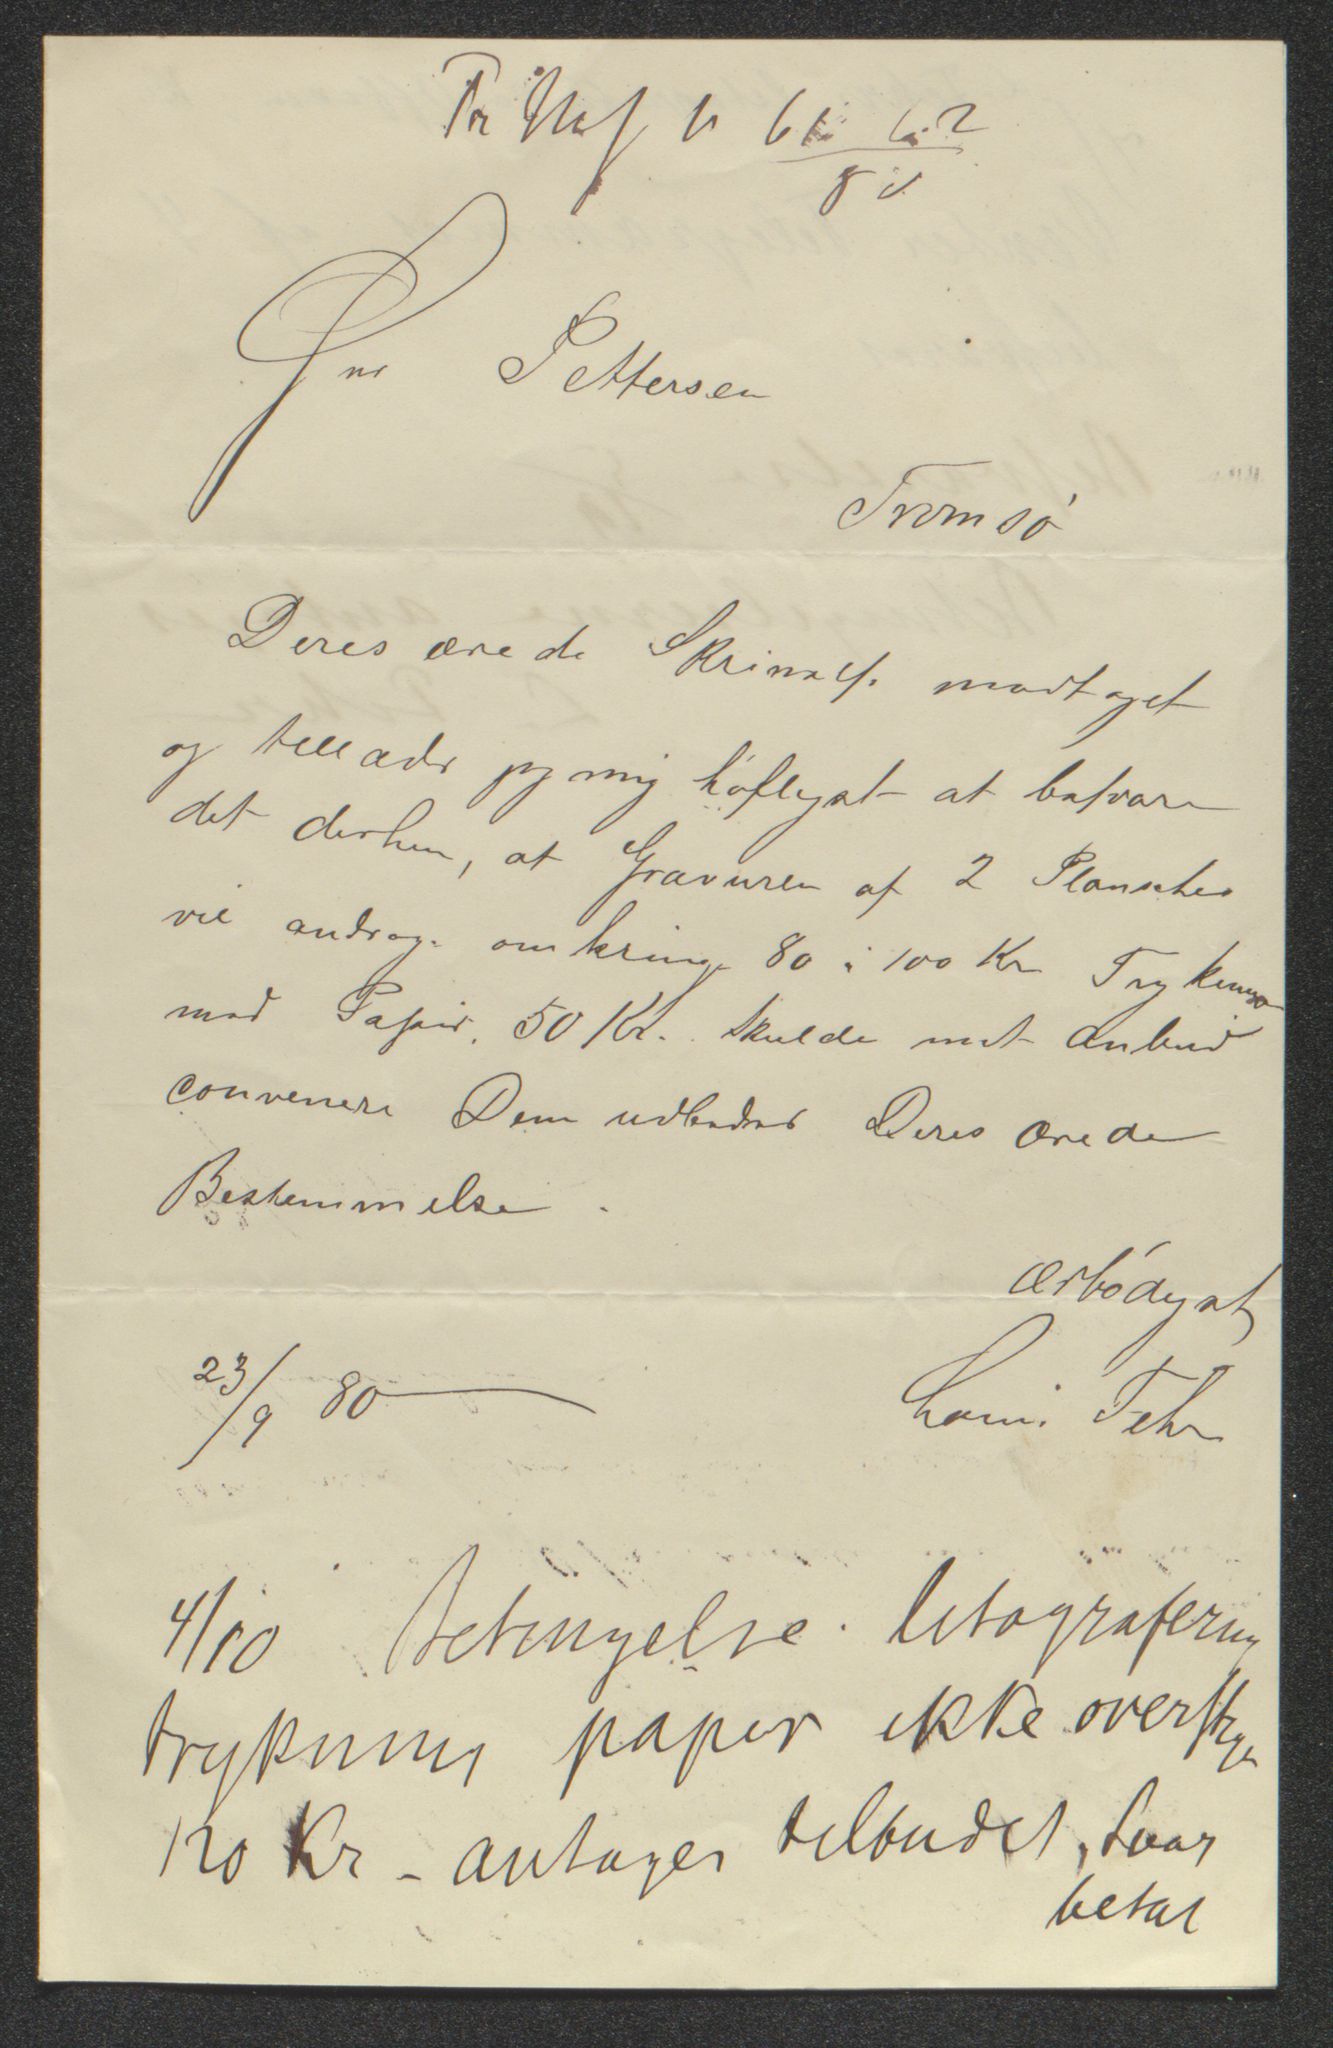 Tr Mus J N 61 62
80
Hr Pettersen
Tromsó
Deres ærede Skrivelse modtaget
og tillader jeg mig höfligst at besvare
det derhen, at Gravuren af 2 Planches
vil andrage omkring 80 à 100 Kr Trykningen
med Papir 50 Kr. Skulde mit Anbud
convenere Dem udbedes Deres ærede
Bestemmelse.
ærbódigst
23/9 80
Louis Fehr
4/10 Betingelse. litografering
trykning papir ikke overstiger
120 Kr - antages tilbudet, svar
betal